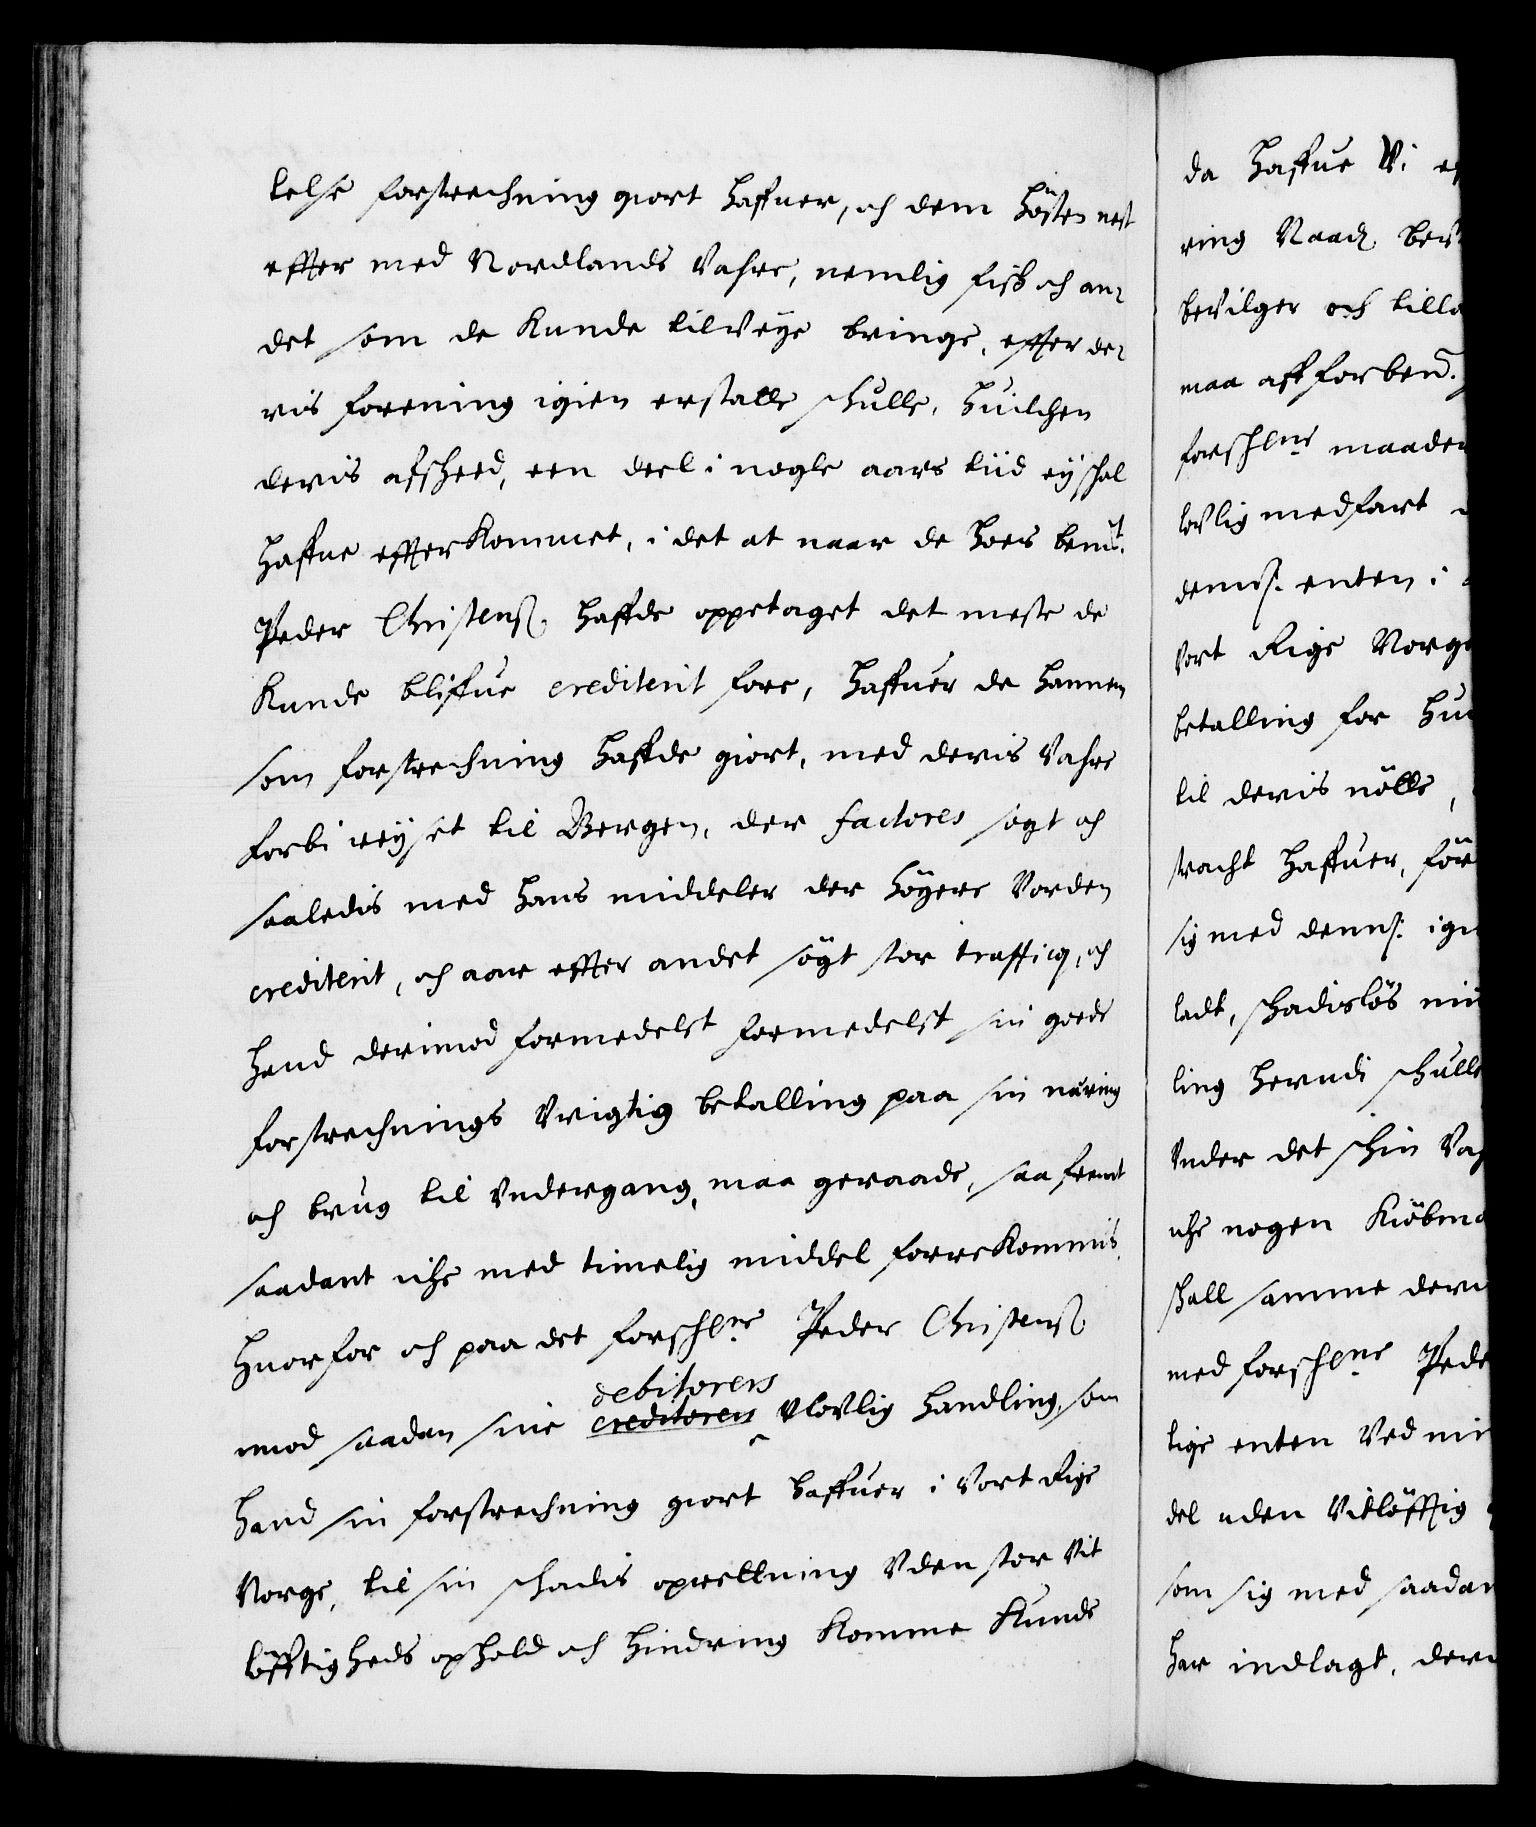 lelse forstrechning giort haffuer, och dem hösten nest
effter med Nordlands Vahre, nemlig fisk och an-
det som de kunde tilveye bringe, effter de-
ris forening igien erstatte schulle, huilchen
deris afscheed, een deel i nogle aars tiid ey schal
haffue effterkommet, i det at naar de hoes bemt.
Peder Christens. haffde oppetaget det meste de
kunde bliffue crediterit fore, haffuer de hannem
som forstrechning haffde giort, med deris Vahre
forbi reyset til Bergen, der factores sögt och
saaledis med hans middeler der höyere Vorden
crediterit, och aar effter andet sögt stor trafficq, och
hand derimod formedelst formedelst sin goede
forstrechnings Vrigtig betalling paa sin næring
och brug til Vndergang, maa geraade, saa fremt
saadant iche med timelig middel forrekommis
huorfor och paa det forschrne Peder Christens.
debitorers
imod saadan sine creditorers Vlovlig handling, som
hand sin forstrechning giort haffuer i Vort Rige
Norge, til sin schadis oprettning Vden stor Vit
löfftigheds ophold och hindring komme kunde
da haffue Vi
ring Naade
bevilger och
maa aff forbend.
forschrne maader
lovlig medfart
dennß. enten i
Vort Rige Norge
betalling for
til deris nötte,
stracht haffuer,
sig med dennß.
ladt, schadislös
ling herudi schulle
Vnder det schin
iche nogen
schall samme
med forschrne
lige enten Ved
del uden Vitlöfftig
som sig med saadan
har indlagt,